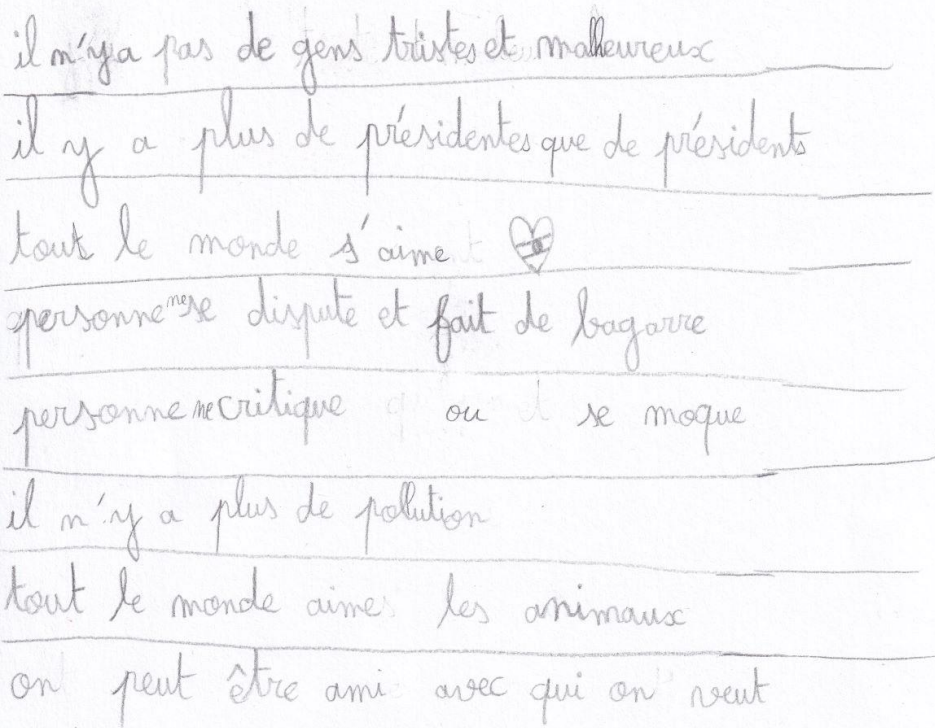 il n'y a pas de gens tristes et malheureux
il y a plus de présidentes que de présidents
tout le monde s'aime
personne ne se dispute et fait de bagarre
personne ne critique ou se moque
il n'y a plus de pollution
tout le monde aime les animaux
on peut être ami avec qui on veut